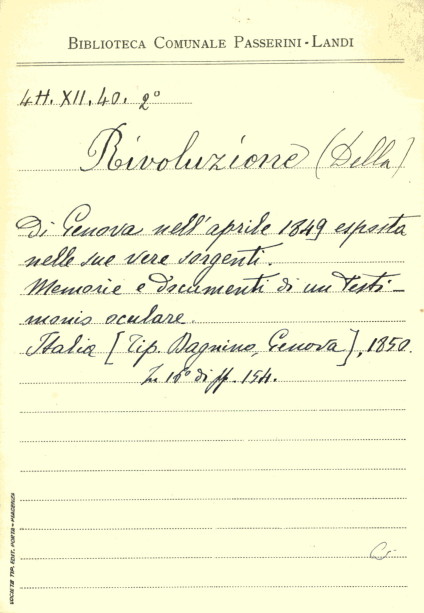 BIBLIOTECA COMUNALE PASSERINI-LANDI
4H. XII. 40. 2°
Rivoluzione (Della)
Di Genova nell'aprile 1849 esposta
nelle sue vere sorgenti.
Memorie e documenti di un testi-
monio oculare.
Italia [Tip. Dagnino, Genova], 1850.
In 16° di pp. 154.
SOCIETÀ TIP. EDIT. PORTA - PIACENZA